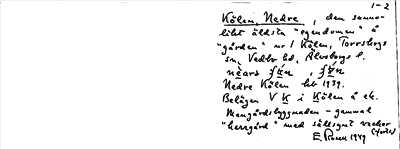 1-2
Kölen, Nedre, den sanno-
likt äldsta "egendomen" å
"gården" nr 1 Kölen, Torrskogs
sn, Vedbo hd, Älvsborgs l.
Nedre Kölen bb 1939.
Belägen V K i Kölen å ek.
Mangårdsbyggnaden - gammal
"herrgård" med sällsynt vacker
E. 1949 (forts)